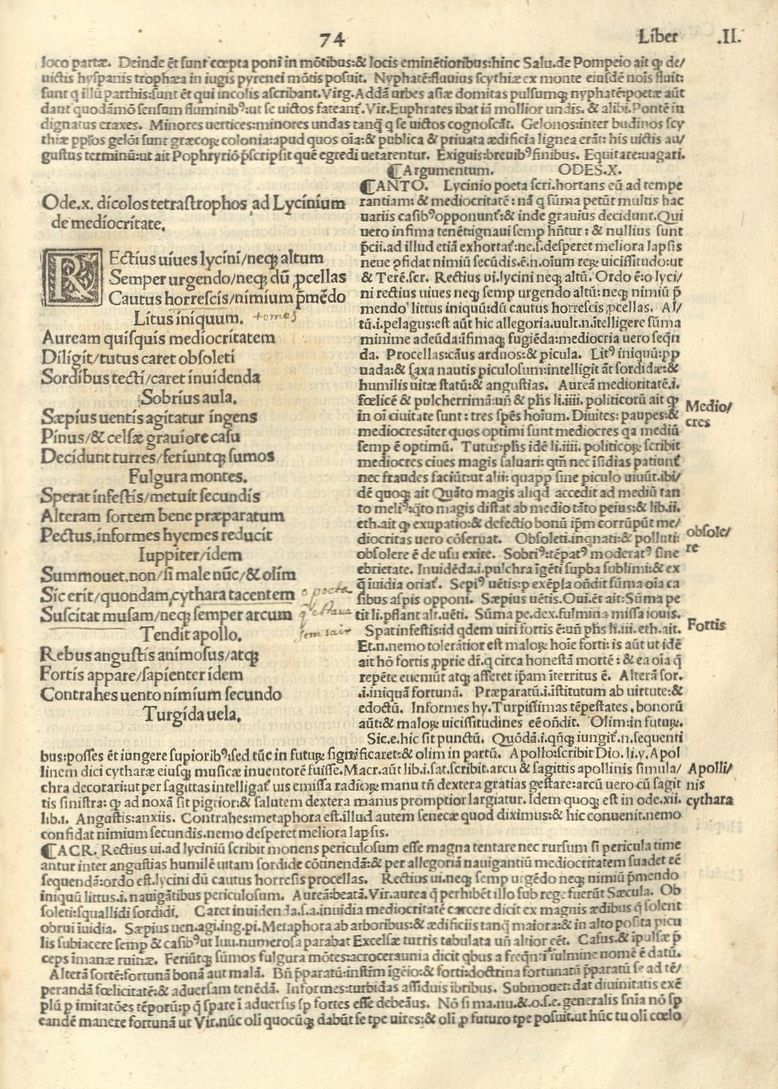 74 Liber .II.
loco partæ. Deinde ẽt sunt cœpta poni in mõtibus:& locis eminẽtioribus:hinc Salu.de Pompeio ait ꝙ de/
uictis hyspanis trophæa in iugis pyrenei mõtis posuit. Nyphatẽ:fluuius scythiæ ex monte eiusdẽ nois fluit:
sunt q illũ parthis:sunt ẽt qui incolis ascribant. Virg. Addã urbes asiæ domitas pulsumq; nyphatẽ:poetæ aũt
dant quodãmõ sensum fluminibꝰ:ut se uictos fateant̃. Vir. Euphrates ibat iã mollior undis. & alibi. Pontẽ in
dignatus eraxes. Minores uertices:minores undas tanq̃ q se uictos cognoscãt. Gelonos:inter budinos scy
thiæ pp̃los gelõi sunt græcoꝝ colonia:apud quos oĩa:& publica & priuata ædificia lignea erãt: his uictis au/
gustus terminũ:ut ait Pophryriõ p̃scripsit quẽ egredi uetarentur. Exiguis:breuibꝰ finibus. Equitare:uagari.
Ode.x. dicolos tetrastrophos ad Lycinium
de mediocritate.
REctius uiues lycini/neq; altum
Semper urgendo/neq; dũ ꝓcellas
Cautus horrescis/nimium p̃mẽdo
Litus iniquum.
Auream quisquis mediocritatem
Diligit/tutus caret obsoleti
Sordibus tecti/caret inuidenda
Sobrius aula.
Sæpius uentis agitatur ingens
Pinus/& celsæ grauiore casu
Decidunt turres/feriuntq; sumos
Fulgura montes.
Sperat infestis/metuit secundis
Alteram sortem bene præparatum
Pectus, informes hyemes reducit
Iuppiter/idem
Summouet. non/si male nũc/& olim
Sic erit/quondam cythara tacentem
Suscitat musam/neq; semper arcum
Tendit apollo.
Rebus angustis animosus/atq;
Fortis appare/sapienter idem
Contrahes uento nimium secundo
Turgida uela.
¶Argumentum. ODES.X.
¶CANTO. Lycinio poeta scri.hortans eũ ad tempe
rantiam:& mediocritatẽ: nã q sũma petũt multis hac
uariis casibꝰ opponunt̃:& inde grauius decidunt. Qui
uero infima tenẽt:ignaui semp hñtur: & nullius sunt
p̃cii.ad illud etiã exhortat̃:ne.s.desperet meliora lapsis
neue p̃fidat nimiũ secũdis.ẽ.n.oĩum reꝝ uicissitudo:ut
& Terẽ.scr. Rectius ui.lycini neq; altũ. Ordo ẽ:o lyci/
ni rectius uiues neq; semp urgendo altũ: neq; nimiũ p̃
mendo littus iniquũ:dũ cautus horrescis ꝓcellas. Al/
tũ.i.pelagus:est aũt hic allegoria.uult.n.ĩtelligere sũma
minime adeũda:ĩfimaq; fugiẽda:mediocria uero seqn̄
da. Procellas:cãus arduos:& picula. Litꝰ iniquũ:pp̃
uada:& saxa nautis piculosum:intelligit ãt sordidæ:&
humilis uitæ statũ:& angustias. Aureã medioritatẽ.i.
fœlicẽ & pulcherrimã:uñ & phs̃ li.iiii. politicoꝝ ait ꝙ
in oĩ ciuitate sunt: tres spẽs hoĩum. Diuites: paupes:&
mediocres:ĩter quos optimi sunt mediocres qa mediũ
semp ẽ optimũ. Tutus:phs̃ idẽ li.iiii. politicoꝝ scribit
mediocres ciues magis saluari: qm̃ nec ĩsidias patiunt̃
nec fraudes faciũt:ut alii: quapp̃ sine piculo uiuũt.ibi/
dẽ quoq; ait Quãto magis aliqd accedit ad mediũ tan
to meliꝰ:q̃to magis distat ab medio tãto peius:& lib.ii.
eth.ait ꝙ exupatio:& defectio bonũ ip̃m corrũpũt me/
diocritas uero cõseruat. Obsoleti.inqnati:& polluti:
obsolere ẽ de usu exire. Sobriꝰ:tẽpatꝰ moderatꝰ sine
ebrietate. Inuidẽda.i.pulchra ĩgẽti supba sublimi:& ex
q̃ iuidia oriat̃. Sepiꝰ uẽtis:p exẽpla oñdit sũma oĩa ca
sibus aspis opponi. Sæpius uẽtis. Oui.ẽt ait:Sũma pe
tit li.pflant alt.uẽti. Sũma pe.dex.fulmina missa iouis.
Spat infestis:id qdem uiri fortis ẽ:uñ phs̃ li.iii.eth.ait.
Et.n.nemo tolerãtior est maloꝝ hoĩe forti:is aũt ut idẽ
ait hõ fortis ꝓprie dĩ.q circa honestã mortẽ:& ea oĩa q̃
repẽte eueniũt atq; afferet ip̃am ĩterritus ẽ. Alterã sor.
.i.iniquã fortunã. Præparatũ.i.ĩstitutum ab uirtute:&
edoctũ. Informes hy. Turpissimas tẽpestates. bonorũ
aũt:& maloꝝ uicissitudines eẽ oñdit. Olim:in futurꝝ.
Sic.e.hic sit punctũ. Quõdã.i.qñq; iungit̃.n.sequenti
bus:posses ẽt iungere supioribꝰ:sed tũc in futurꝝ significaret:& olim in partũ. Apollo:scribit Dio.li.v.Apol
linem dici cytharæ eiusq; musicæ inuentorẽ fuisse. Macr.aũt lib.i.sat.scribit.arcu & sagittis apollinis simula/
chra decorari:ut per sagittas intelligat̃ uis emissa radioꝝ manu tñ dextera gratias gestare:arcũ uero cũ sagit
tis sinistra: ꝙ ad noxã sit pigrior:& salutem dextera manus promptior largiatur. Idem quoq; est in ode.xii.
lib.i. Angustis:anxiis. Contrahes:metaphora est.illud autem senecæ quod diximus:& hic conuenit.nemo
confidat nimium secundis.nemo desperet meliora lapsis.
¶ACR. Rectius ui.ad lyciniũ scribit monens periculosum esse magna tentare nec rursum si pericula time
antur inter angustias humilẽ uitam sordide cõtinendã:& per allegoriã nauigantiũ mediocritatem suadet eẽ
sequendã:ordo est.lycini dũ cautus horresis procellas. Rectius ui.neq; semp urgẽdo neq; nimiũ p̃mendo
iniquũ littus.i.nauigãtibus periculosum. Aureã:beatã. Vir.aurea q̃ perhibẽt illo sub rege fuerũt Sæcula. Ob
soleti:squallidi sordidi. Caret inuidenda.s.a.inuidia mediocritatẽ carere dicit ex magnis ædibus q̃ solent
obrui ĩuidia. Sæpius uen.agi.ing.pi. Metaphora ab arboribus:& ædificiis tanq̃ maiora:& in alto posita picu
lis subiacere semp & casibꝰ ut Iuu.numerosa parabat Excelsæ turris tabulata uñ altior eẽt. Casus.& ĩpulsæ p̃
ceps imanæ ruinæ. Feriũtq; sũmos fulgura mõtes:acroceraunia dicit qbus a freqñti fulmine nomẽ ẽ datũ.
Alterã sortẽ:fortunã bonã aut malã. Bñ p̃paratũ:instim ĩgeio:& forti:doctrina fortunatũ p̃paratũ se ad tẽ/
perandã fœlicitatẽ:& aduersam tenẽdã. Informes:turbidas assiduis ibribus. Submouet:dat diuinitatis exẽ
plũ p imitatões tẽporũ:p q̃ spare ĩ aduersis sp fortes esse debeãus. Nõ si ma.nu.& o.s.e. generalis snĩa nõ sp
eandẽ manere fortunã ut Vir.nũc oli quocũq; dabũt se tpe uires:& oli ꝓ futuro tpe posuit.ut hũc tu oli cœlo
Medio/
cres
obsole/
re
Fortis
Apolli/
nis
cythara